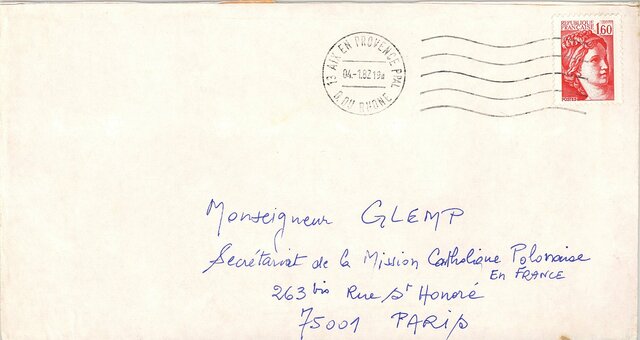 RÉPUBLIQUE
FRANÇAISE
1,60
POSTES
13 AIX EN PROVENCE PPAL
04.-1.82 19H
B. DU RHONE
Monseigneur GLEMP
Secrétariat de la Mission Catholique Polonaise
EN FRANCE
263 bis Rue St Honoré
75001 PARIS